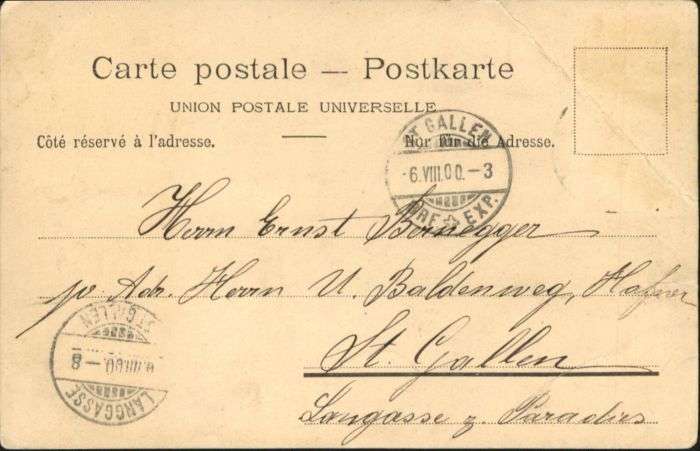 Carte postale — Postkarte
UNION POSTALE UNIVERSELLE
Côté réservé à l'adresse.
Nur für die Adresse.
ST. GALLEN
-6.VIII.00.-3
BRF. EXP.
Herrn Ernst Bernegger
p. Adr. Herrn U. Baldenweg, Hafner
St. Gallen
Langasse z. Paradies
ST. GALLEN
VIII.00.-8
LANGGASSE